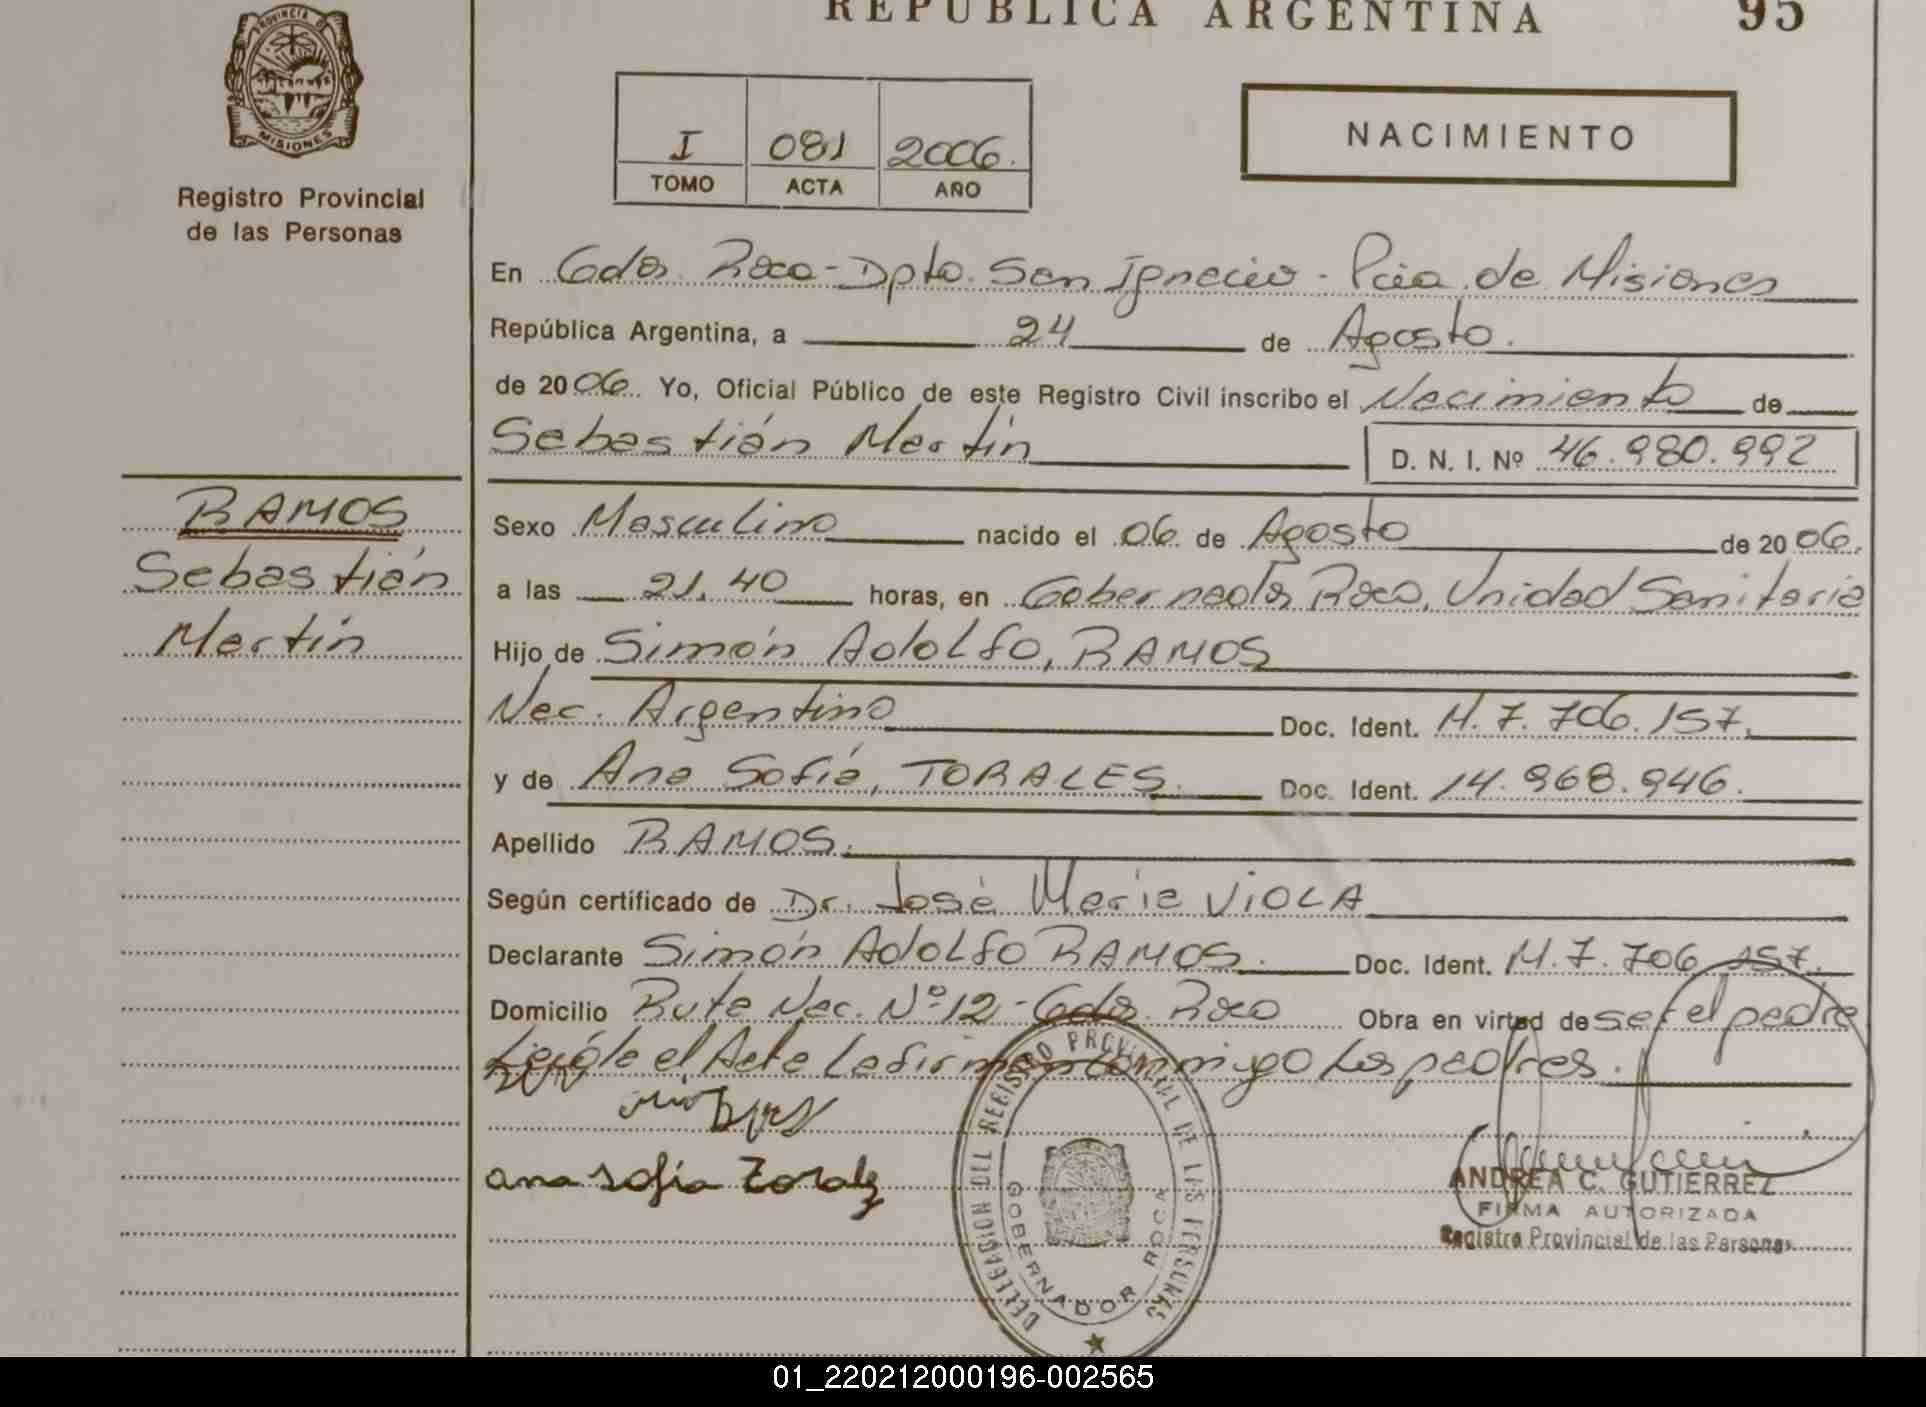 REPUBLICA ARGENTINA 95
PROVINCIA DE
MISIONES
Registro Provincial
de las Personas
I 081 2006.
TOMO ACTA AÑO
NACIMIENTO
En Gdor. Roca - Dpto. San Ignacio - Pcia de Misiones
República Argentina, a 24 de Agosto.
de 2006. Yo, Oficial Público de este Registro Civil inscribo el Nacimiento de
Sebastián Martín D. N. I. Nº 46.980.992
RAMOS
Sebastián
Martín
Sexo Masculino nacido el 06 de Agosto de 2006.
a las 21,40 horas, en Gobernador Roca, Unidad Sanitaria
Hijo de Simón Adolfo, RAMOS
Nac. Argentino Doc. Ident. M. 7.706.157.
y de Ana Sofía, TORALES. Doc. Ident. 14.968.946.
Apellido RAMOS.
Según certificado de Dr. José María VIOLA
Declarante Simón Adolfo RAMOS. Doc. Ident. M.7.706.157.
Domicilio Ruta Nac. Nº 12 - Gdor. Roca Obra en virtud de ser el padre
el Acta La firman conmigo Los padres.
ana sofia Torales
DELEGACION DEL REGISTRO PROVINCIAL DE LAS PERSONAS
GOBERNADOR ROCA
ANDREA C. GUTIERREZ
FIRMA AUTORIZADA
Registro Provincial de las Personas
01_220212000196-002565